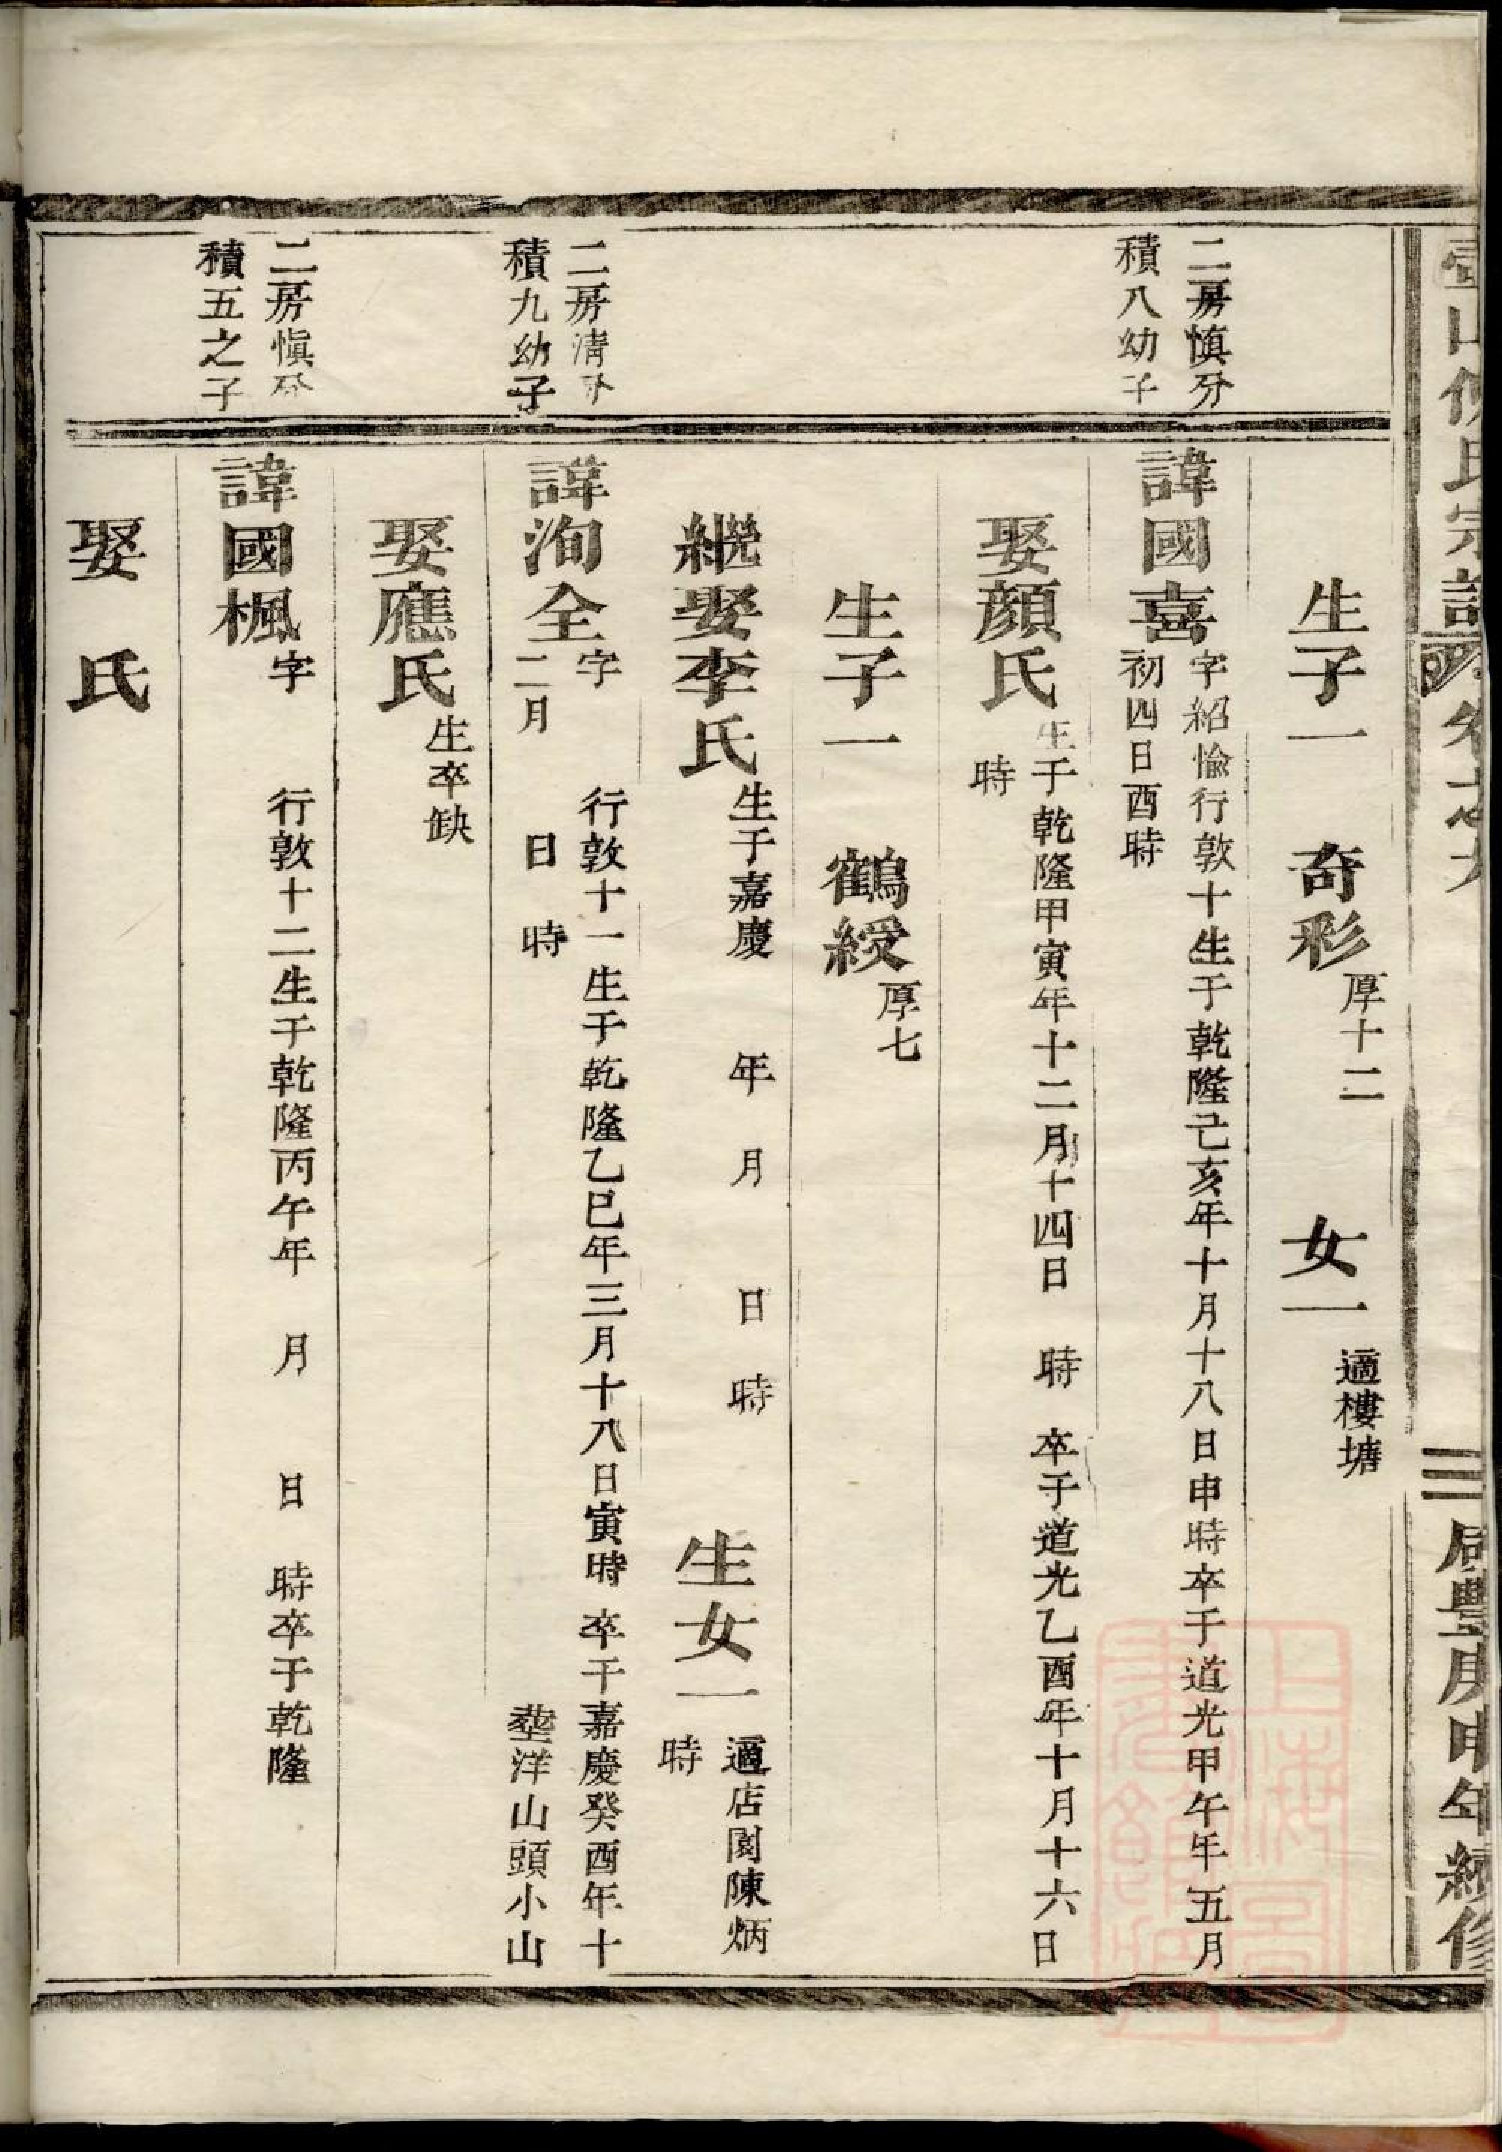 山 氏宗譜 卷之六 三 咸豐庚申年續修
生子一 奇彩 厚十二 女一 適樓塘
二房慎分
積八幼子
諱國喜 字紹愉行敦十生于乾隆己亥年十月十八日申時卒于道光甲午年五月
初四日酉時
娶顏氏 生于乾隆甲寅年十二月十四日 時 卒于道光乙酉年十月十六日
時
生子一 鶴綬 厚七
繼娶李氏 生于嘉慶 年 月 日 時 生女一 適店園陳炳
時
二房清分
積九幼子
諱洵全 字 行敦十一生于乾隆乙巳年三月十八日寅時 卒于嘉慶癸酉年十
二月 日 時 塟洋山頭小山
娶應氏 生卒缺
二房慎分
積五之子
諱國楓 字 行敦十二生于乾隆丙午年 月 日 時卒于乾隆
娶 氏